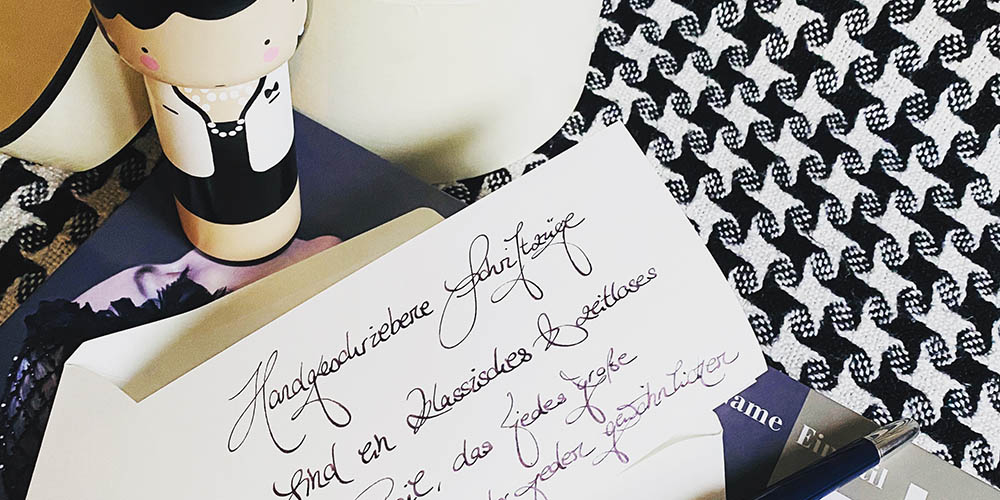 Handgeschriebene Schriftzüge
sind ein klassisches & zeitloses
das jedes große
jeden gewöhnlichen
ame
Ein